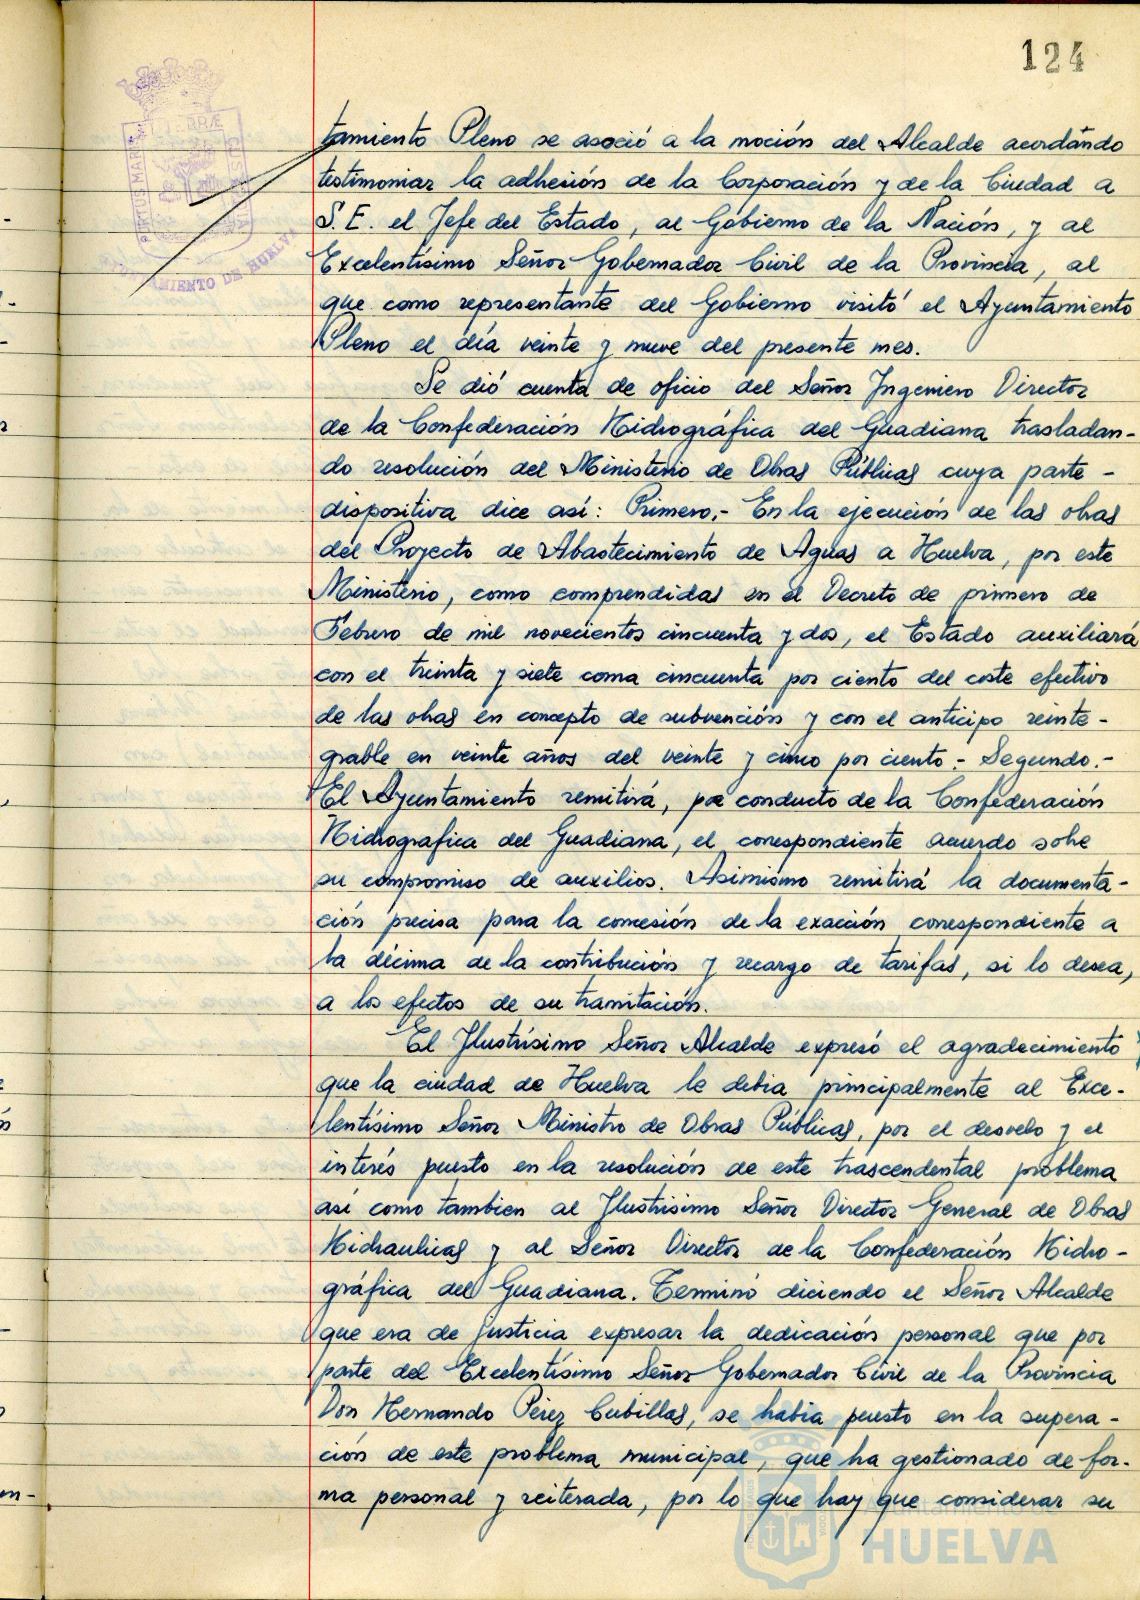 124
PORTUS MARIS ET TERRÆ CUSTODIA
AYUNTAMIENTO DE HUELVA
tamiento Pleno se asoció a la moción del Alcalde acordándo
testimoniar la adhesión de la Corporación y de la Ciudad a
S.E. el Jefe del Estado, al Gobierno de la Nación, y al
Excelentísimo Señor Gobernador Civil de la Provincia, al
que como representante del Gobierno visitó el Ayuntamiento
Pleno el día veinte y nueve del presente mes.
Se dió cuenta de oficio del Señor Ingeniero Director
de la Confederación Hidrográfica del Guadiana trasladan-
do resolución del Ministerio de Obras Públicas cuya parte -
dispositiva dice así: Primero.- En la ejecución de las obras
del Proyecto de Abastecimiento de Aguas a Huelva, por este
Ministerio, como comprendidas en el Decreto de primero de
Febrero de mil novecientos cincuenta y dos, el Estado auxiliará
con el treinta y siete coma cincuenta por ciento del coste efectivo
de las obras en concepto de subvención y con el anticipo reinte-
grable en veinte años del veinte y cinco por ciento.- Segundo.-
El Ayuntamiento remitirá, por conducto de la Confederación
Hidrografica del Guadiana, el correspondiente acuerdo sobre
su compromiso de auxilios. Asimismo remitirá la documenta-
ción precisa para la concesión de la exacción correspondiente a
la décima de la contribución y recargo de tarifas, si lo desea,
a los efectos de su tramitación.
El Ilustrísimo Señor Alcalde expresó el agradecimiento
que la ciudad de Huelva le debia principalmente al Exce-
lentísimo Señor Ministro de Obras Públicas, por el desvelo y el
interés puesto en la resolución de este trascendental problema
así como tambien al Ilustrisimo Señor Director General de Obras
Hidraulicas y al Señor Director de la Confederación Hidro-
gráfica del Guadiana. Terminó diciendo el Señor Alcalde
que era de justicia expresar la dedicación personal que por
parte del Excelentísimo Señor Gobernador Civil de la Provincia
Don Hernando Pérez Cubillas, se habia puesto en la supera-
ción de este problema municipal, que ha gestionado de for-
ma personal y reiterada, por lo que hay que considerar su
Ayuntamiento de
HUELVA